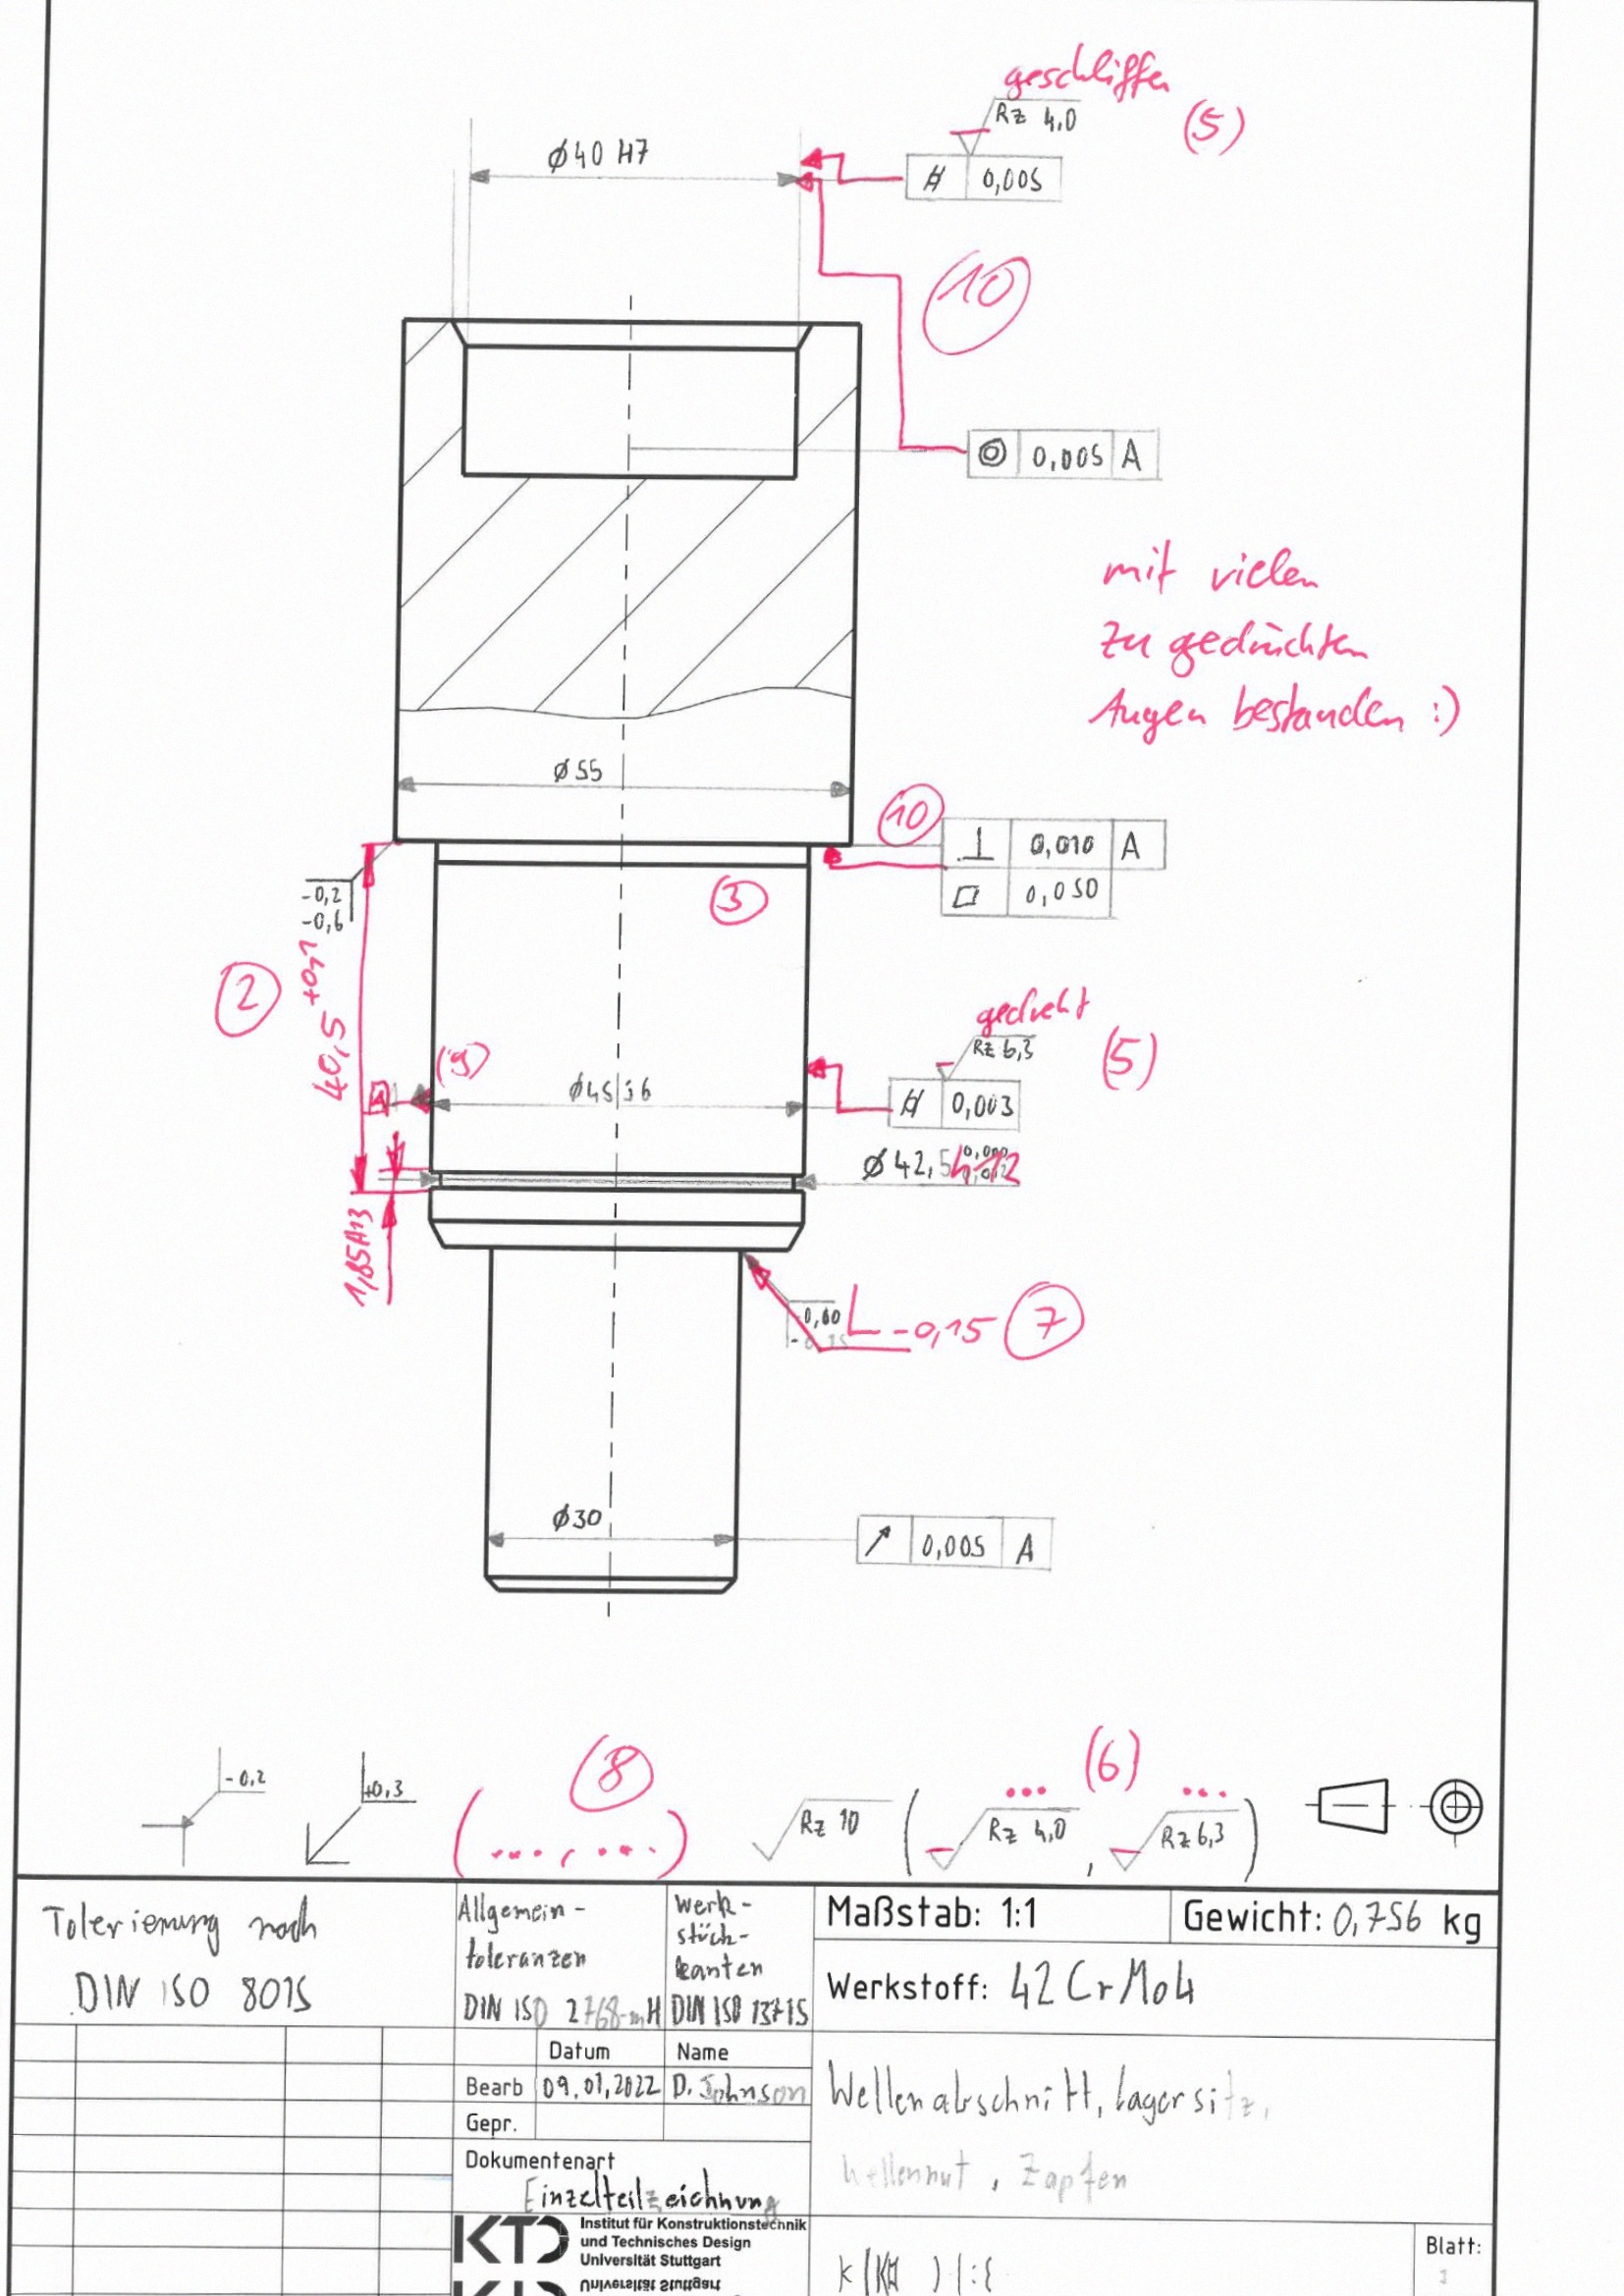 geschliffen
Rz 4,0
(5)
⌀40 H7
0,005
10
0,005 A
mit vielen
zu gedrückten
Augen bestanden :)
⌀55
10
0,010 A
0,050
-0,2
-0,6
3
2
40,5 +0,1
gedreht
Rz 6,3
(5)
(9)
A
⌀45 j6
0,003
⌀42,5 h12
1,85 H13
-0,15
7
⌀30
0,005 A
8
(6)
-0,2
+0,3
(...., ....)
Rz 10
(Rz 4,0 , Rz 6,3)
Tolerierung nach
DIN ISO 8015
Allgemein-
toleranzen
DIN ISO 2768-mH
Werk-
stück-
kanten
DIN ISO 13715
Maßstab: 1:1
Gewicht: 0,756 kg
Werkstoff: 42CrMo4
Datum Name
Bearb 09.01.2022 D. Johnson
Gepr.
Wellenabschnitt, Lagersitz,
Wellennut, Zapfen
Dokumentenart
Einzelteilzeichnung
KTD
Institut für Konstruktionstechnik
und Technisches Design
Universität Stuttgart
Blatt: